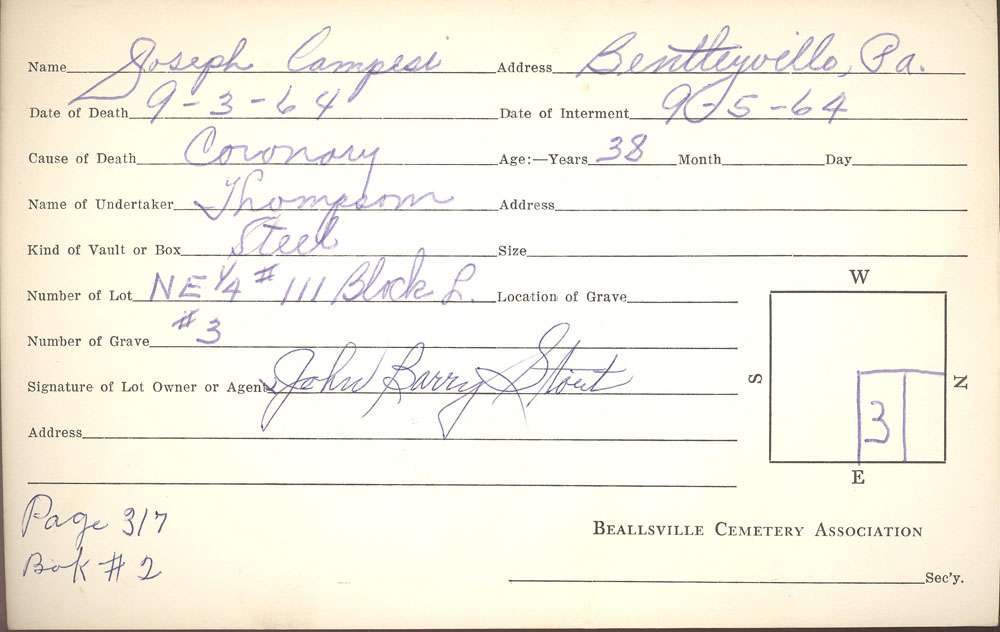 Name Joseph Campesi Address Bentleyville, Pa.
Date of Death 9-3-64 Date of Interment 9-5-64
Cause of Death Coronary Age:—Years 38 Month Day
Name of Undertaker Thompson Address
Kind of Vault or Box Steel Size
Number of Lot NE 1/4 # 111 Block L. Location of Grave
Number of Grave #3
Signature of Lot Owner or Agent John Barry Stout
Address
W
S
N
3
E
Page 317
Bok # 2
BEALLSVILLE CEMETERY ASSOCIATION
Sec'y.